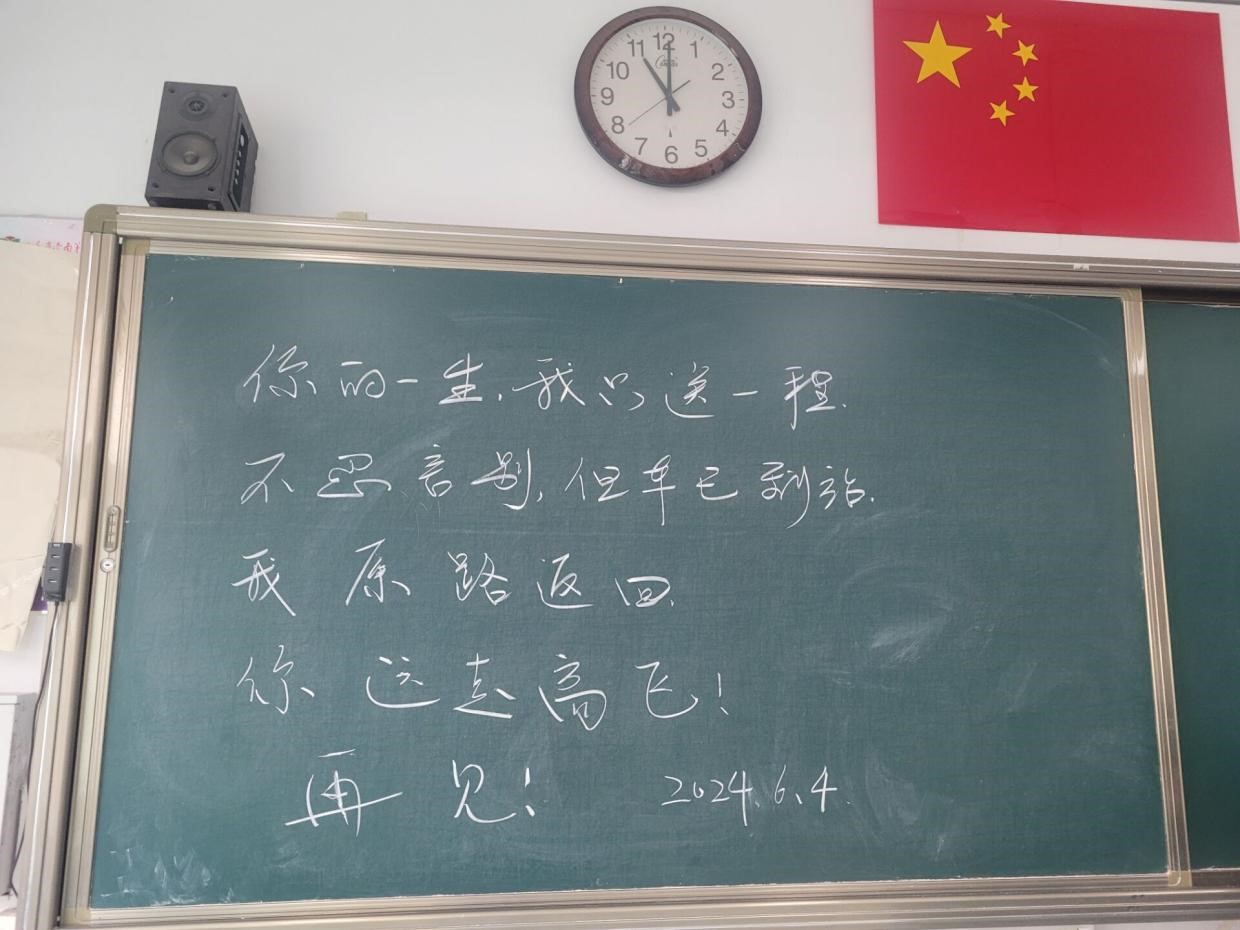 12
1
2
3
4
5
6
7
8
9
10
11
你的一生,我只送一程.
不忍言别,但车已到站.
我原路返回.
你远走高飞!
再见!
2024.6.4.